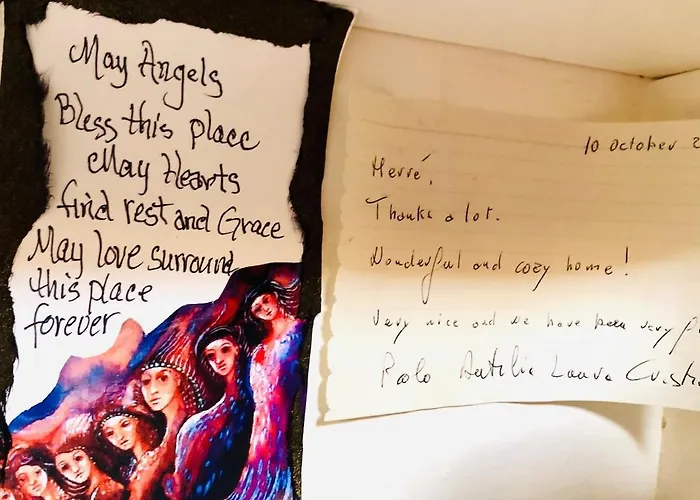 May Angels
Bless this place
May Hearts
find rest and Grace
May love surround
this place
forever
10 October
Hervé,
Thanks a lot.
Wonderful and cozy home!
Very nice and we have been very
Laura